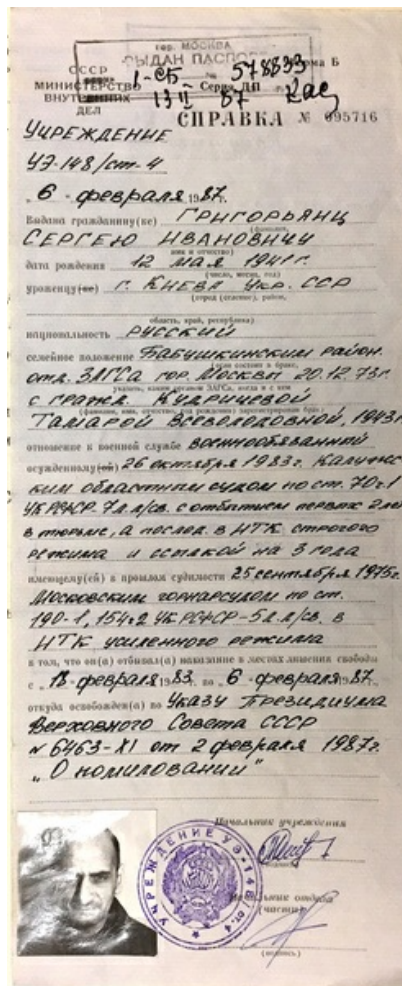 гор. МОСКВА
ВЫДАН ПАСПОРТ
Форма Б
СССР
МИНИСТЕРСТВО
ВНУТРЕННИХ
ДЕЛ
1-СБ № 578833
Серия ДП
13 II 87
СПРАВКА № 095716
УЧРЕЖДЕНИЕ
УЭ-148/ст-4
„6" февраля 1987г.
Выдана гражданину(ке) ГРИГОРЬЯНЦ
(фамилия,
СЕРГЕЮ ИВАНОВИЧУ
имя и отчество)
дата рождения 12 мая 1941г.
(число, месяц, год)
уроженцу(ке) г. КИЕВА УКР. ССР
(город (селение), район,
область, край, республика)
национальность РУССКИЙ
семейное положение БАБУШКИНСКИМ РАЙОН.
отд. ЗАГСа гор. Москвы 20.12.73г.
указать, каким органом ЗАГСа, когда и с кем
с гражд. КУДРИЧЕВОЙ
(фамилия, имя, отчество, год рождения) зарегистрирован брак)
ТАМАРОЙ ВСЕВОЛОДОВНОЙ, 1943г
отношение к военной службе ВОЕННООБЯЗАННЫЙ
осужденному(ой) 26 октября 1983г. Калужс
ким областным судом по ст. 70 ч 1
УК РСФСР. 7 л л/св. с отбытием первых 2 лет
в тюрьме, а послед. в ИТК строгого
режима и ссылкой на 3 года
имеющему(ей) в прошлом судимости 25 сентября 1975г.
Московским горнарсудом по ст.
190-1, 154 ч 2 УК РСФСР - 5 л. л/св. в
ИТК усиленного режима
в том, что он(а) отбывал(а) наказание в местах лишения свободы
с „18" февраля 1983 по „6" февраля 1987г.
откуда освобожден(а) по Указу Президиума
Верховного Совета СССР
№ 6463-XI от 2 февраля 1987г.
„О помиловании"
Начальник учреждения
УЧРЕЖДЕНИЕ УЭ-148/ст.4
Начальник отдела
(части)
(подпись)